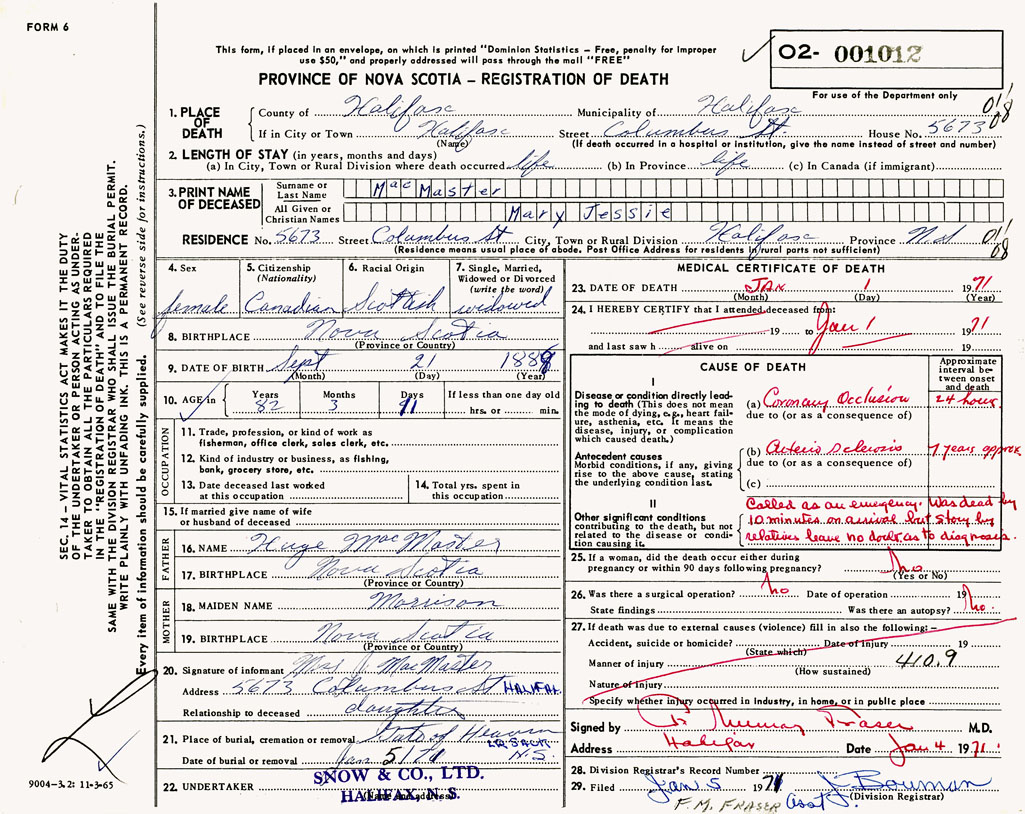 FORM 6
This form, if placed in an envelope, on which is printed "Dominion Statistics – Free, penalty for improper
use $50," and properly addressed will pass through the mail "FREE"
PROVINCE OF NOVA SCOTIA – REGISTRATION OF DEATH
02- 001012
For use of the Department only
SEC. 14 – VITAL STATISTICS ACT MAKES IT THE DUTY
OF THE UNDERTAKER OR PERSON ACTING AS UNDER-
TAKER TO OBTAIN ALL THE PARTICULARS REQUIRED
IN THE "REGISTRATION OF DEATH" AND TO FILE THE
SAME WITH THE DIVISION REGISTRAR WHO SHALL ISSUE THE BURIAL PERMIT.
WRITE PLAINLY WITH UNFADING INK. THIS IS A PERMANENT RECORD.
Every item of information should be carefully supplied. (See reverse side for instructions.)
9004-3.2: 11-3-65
1. PLACE OF DEATH
County of Halifax Municipality of Halifax 01/08
If in City or Town Halifax Street Columbus St. House No. 5673
(Name) (If death occurred in a hospital or institution, give the name instead of street and number)
2. LENGTH OF STAY (in years, months and days)
(a) In City, Town or Rural Division where death occurred life (b) In Province life (c) In Canada (if immigrant)
3. PRINT NAME OF DECEASED
Surname or Last Name MacMaster
All Given or Christian Names Mary Jessie
RESIDENCE No. 5673 Street Columbus St City, Town or Rural Division Halifax Province N.S 01/08
(Residence means usual place of abode. Post Office Address for residents in rural parts not sufficient)
4. Sex female
5. Citizenship (Nationality) Canadian
6. Racial Origin Scottish
7. Single, Married, Widowed or Divorced (write the word) widowed
8. BIRTHPLACE Nova Scotia
(Province or Country)
9. DATE OF BIRTH Sept 21 1888
(Month) (Day) (Year)
10. AGE in Years 82 Months 3 Days 11 If less than one day old hrs. or min.
OCCUPATION
11. Trade, profession, or kind of work as
fisherman, office clerk, sales clerk, etc.
12. Kind of industry or business, as fishing,
bank, grocery store, etc.
13. Date deceased last worked
at this occupation
14. Total yrs. spent in
this occupation
15. If married give name of wife
or husband of deceased
FATHER
16. NAME Huge MacMaster
17. BIRTHPLACE Nova Scotia
(Province or Country)
MOTHER
18. MAIDEN NAME Morrison
19. BIRTHPLACE Nova Scotia
(Province or Country)
20. Signature of informant Mrs J. MacMaster
Address 5673 Columbus St HALIFAX
Relationship to deceased daughter
21. Place of burial, cremation or removal Gate of Heaven
N.S.
Date of burial or removal Jan 5/71
22. UNDERTAKER SNOW & CO., LTD.
(Name and address)
HALIFAX, N. S.
MEDICAL CERTIFICATE OF DEATH
23. DATE OF DEATH JAN 1 1971
(Month) (Day) (Year)
24. I HEREBY CERTIFY that I attended deceased from:
19 to Jan 1 1971
and last saw h alive on 19
CAUSE OF DEATH
Approximate interval between onset and death
I
Disease or condition directly lead-
ing to death (This does not mean
the mode of dying, e.g., heart fail-
ure, asthenia, etc. It means the
disease, injury, or complication
which caused death.)
(a) Coronary Occlusion 24 hour
due to (or as a consequence of)
Antecedent causes
Morbid conditions, if any, giving
rise to the above cause, stating
the underlying condition last.
(b) Arterio Sclerosis 7 years approx
due to (or as a consequence of)
(c)
II
Other significant conditions
contributing to the death, but not
related to the disease or condi-
tion causing it.
Called as an emergency. Was dead by
10 minutes on arrival but story by
relatives leave no doubt as to diagnosis.
25. If a woman, did the death occur either during
pregnancy or within 90 days following pregnancy? No
(Yes or No)
26. Was there a surgical operation? no Date of operation 19
State findings Was there an autopsy? no.
27. If death was due to external causes (violence) fill in also the following: –
Accident, suicide or homicide? Date of Injury 19
(State which)
Manner of injury 410.9
(How sustained)
Nature of Injury
Specify whether injury occurred in Industry, in home, or in public place
Signed by Murray Fraser M.D.
Address Halifax Date Jan 4 1971
28. Division Registrar's Record Number
29. Filed Jan 5 1971 J. Bowman
(Division Registrar)
F. M. FRASER Asst